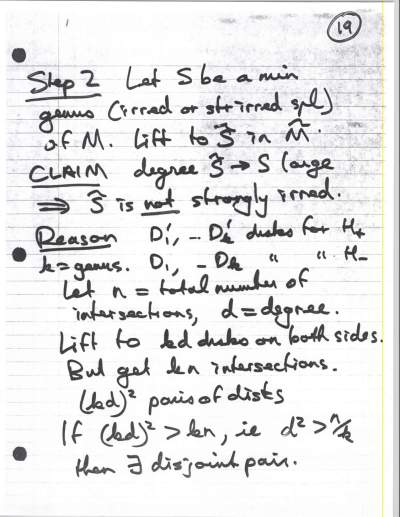 19
Step 2 Let S be a min
genus (irred or st irred spl)
of M. Lift to S̃ in M̃.
CLAIM degree S̃ → S large
⇒ S̃ is not strongly irred.
Reason D₁', – Dₖ' disks for H₊
k = genus. D₁, – Dₖ " " H₋
Let n = total number of
intersections, d = degree.
Lift to kd disks on both sides.
But get kn intersections.
(kd)² pairs of disks
If (kd)² > kn, ie d² > n/k
then ∃ disjoint pair.